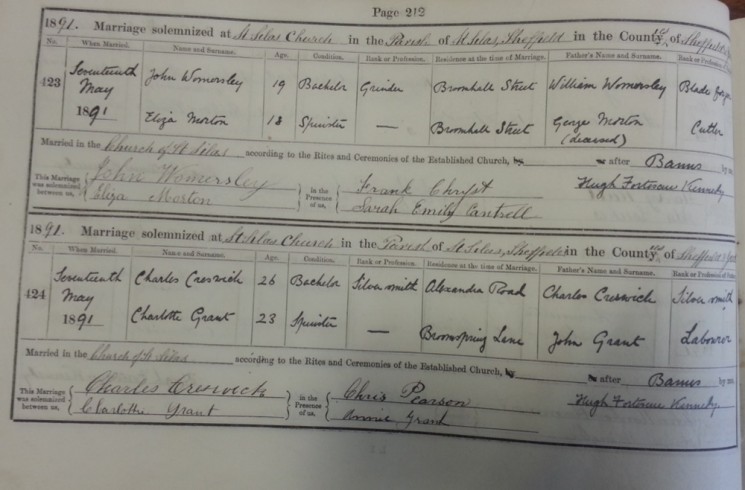 Page 212
1891. Marriage solemnized at St Silas Church in the Parish of St Silas, Sheffield in the County of Sheffield
No. When Married. Name and Surname. Age. Condition. Rank or Profession. Residence at the time of Marriage. Father's Name and Surname. Rank or Profession of
423 Seventeenth May 1891 John Womersley 19 Bachelor Grinder Bromhall Street William Womersley Blade
Eliza Morton 18 Spinster — Bromhall Street George Morton (deceased) Cutler
Married in the Church of St Silas according to the Rites and Ceremonies of the Established Church, by after Banns by me,
This Marriage was solemnized between us, John Womersley in the Presence of us, Frank Hugh Fortescue Kennedy
Eliza Morton Sarah Emily Cantrell
1891. Marriage solemnized at St Silas Church in the Parish of St Silas, Sheffield in the County of Sheffield
No. When Married. Name and Surname. Age. Condition. Rank or Profession. Residence at the time of Marriage. Father's Name and Surname. Rank or Profession of
424 Seventeenth May 1891 Charles Creswick 26 Bachelor Silversmith Alexandra Road Charles Creswick Silversmith
Charlotte Grant 23 Spinster — Broomspring Lane John Grant Labourer
Married in the Church of St Silas according to the Rites and Ceremonies of the Established Church, by after Banns by me,
This Marriage was solemnized between us, Charles Creswick in the Presence of us, Chris Pearson Hugh Fortescue Kennedy
Charlotte Grant Annie Grant